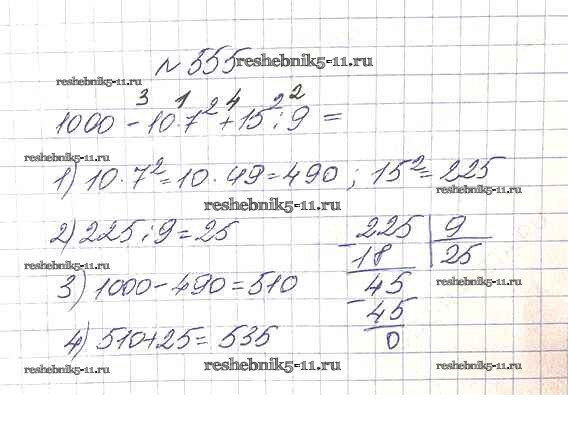 № 555 reshebnik5-11.ru
reshebnik5-11.ru
3 1 4 2
1000 - 10·7² + 15² : 9 =
reshebnik5-11.ru
1) 10·7² = 10·49 = 490 ; 15² = 225
reshebnik5-11.ru
reshebnik5-11.ru
2) 225 : 9 = 25
225 | 9
- 18 | 25
reshebnik5-11.ru
3) 1000 - 490 = 510
45
reshebnik5-11.ru
- 45
4) 510 + 25 = 535
0
reshebnik5-11.ru reshebnik5-11.ru reshebnik5-11.ru